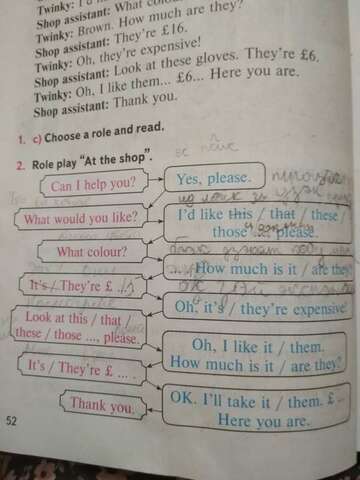 Twinky: I'd
Shop assistant: What colou
Twinky: Brown. How much are they?
Shop assistant: They're £16.
Twinky: Oh, they're expensive!
Shop assistant: Look at these gloves. They're £6.
Twinky: Oh, I like them... £6... Here you are.
Shop assistant: Thank you.
1. c) Choose a role and read.
2. Role play "At the shop".
Can I help you?
Yes, please.
What would you like?
I'd like this / that / these /
those ..., please.
What colour?
How much is it / are they?
It's / They're £ ...
Oh, it's / they're expensive!
Look at this / that /
these / those ..., please.
Oh, I like it / them.
How much is it / are they?
It's / They're £ ... .
OK. I'll take it / them. £ ...
Here you are.
Thank you.
52